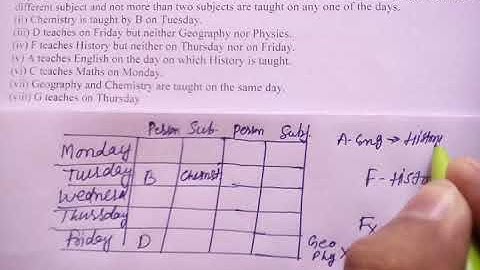 different subject and not more than two subjects are taught on any one of the days.
(ii) Chemistry is taught by B on Tuesday.
(iii) D teaches on Friday but neither Geography nor Physics.
(iv) F teaches History but neither on Thursday nor on Friday.
(v) A teaches English on the day on which History is taught.
(vi) C teaches Maths on Monday.
(vii) Geography and Chemistry are taught on the same day.
(viii) G teaches on Thursday
Person Sub. Person Subj.
Monday
Tuesday B Chemist
Wednesd
Thursday
Friday D
A- Eng → History
F - Histo
Fx
Geo
Phy x